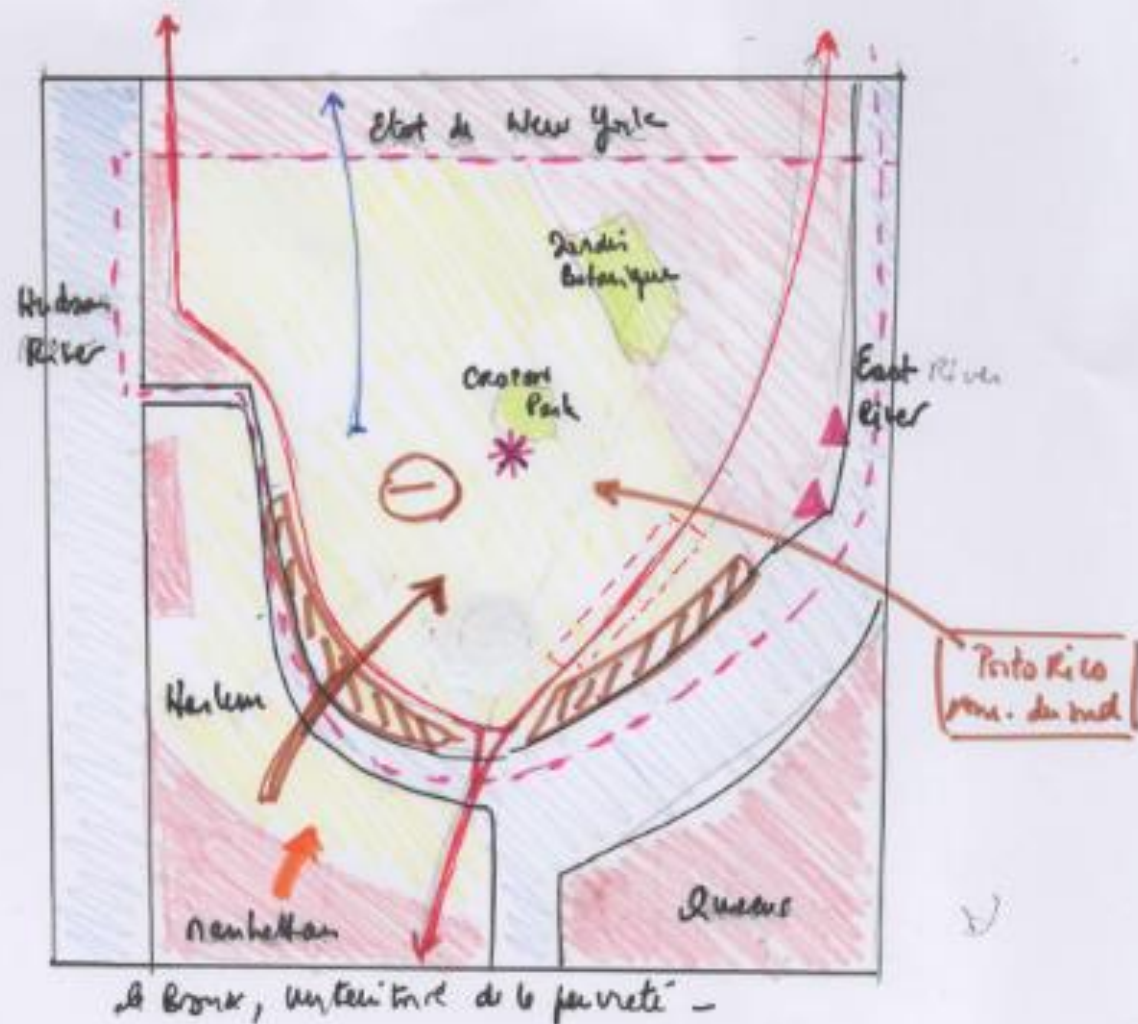 Etat de New York
Jardin
Botanique
Hudson
River
Park
East River
River
Harlem
Porto Rico
du sud
Manhattan
Queens
le Bronx, un territoire de la pauvreté -